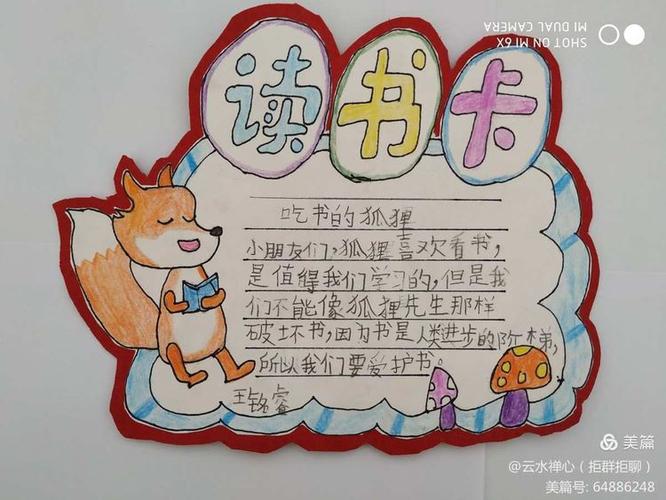 SHOT ON MI 6X
MI DUAL CAMERA
读书卡
吃书的狐狸
小朋友们,狐狸喜欢看书,
是值得我们学习的,但是我
们不能像狐狸先生那样
破坏书,因为书是人类进步的阶梯,
所以我们要爱护书。
王铭睿
美篇
@云水禅心(拒群拒聊)
美篇号: 64886248